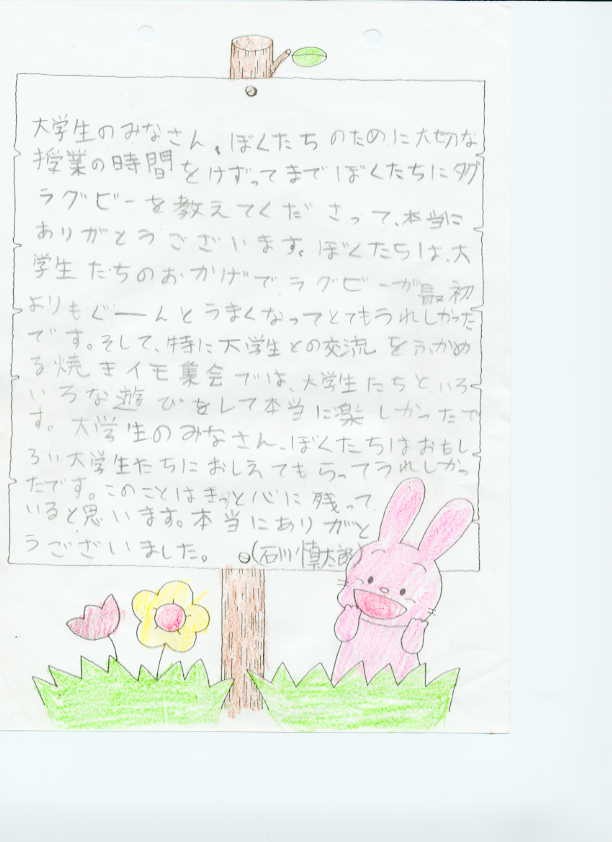 大学生のみなさん、ぼくたちのために大切な
授業の時間をけずってまでぼくたちにタグ
ラグビーを教えてくださって、本当に
ありがとうございます。ぼくたちは、大
学生たちのおかげで、ラグビーが最初
よりもぐーんとうまくなってとてもうれしかった
です。そして、特に大学生との交流をふかめ
る焼きイモ集会では、大学生たちといろ
いろな遊びをして本当に楽しかったで
す。大学生のみなさん、ぼくたちはおもし
ろい大学生たちにおしえてもらってうれしかっ
たです。このことはきっと心に残って
いると思います。本当にありがと
うございました。(石川慎太郎)